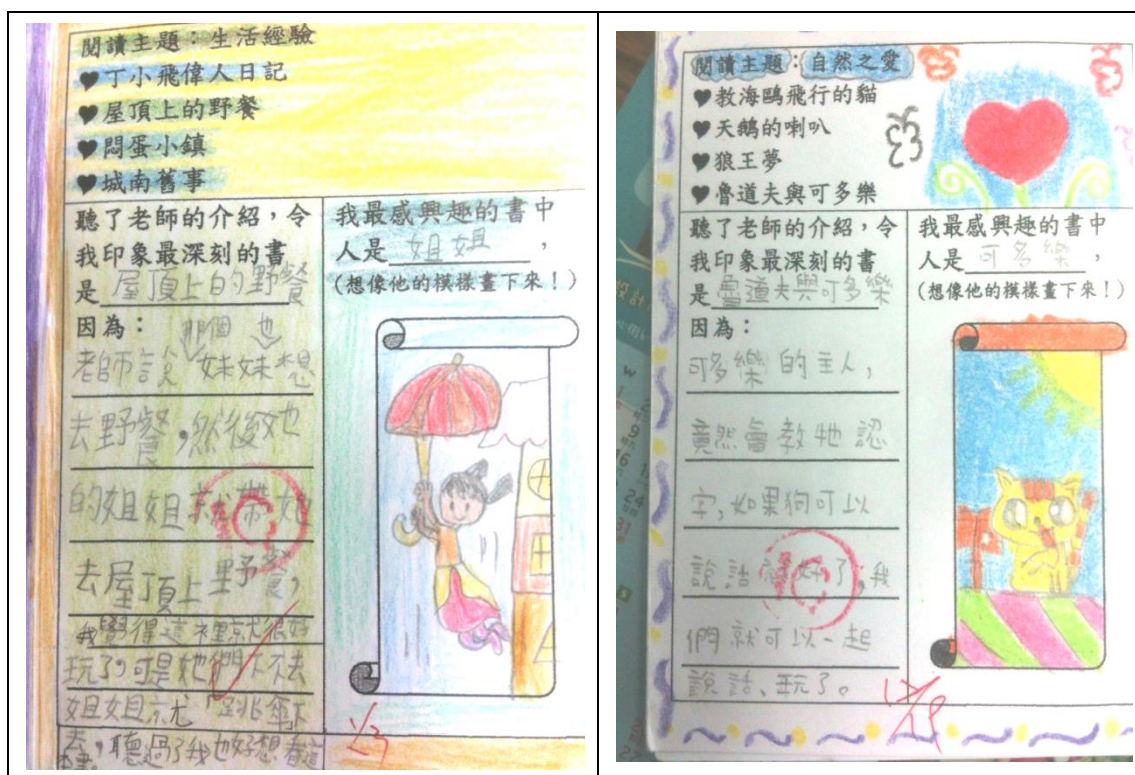 閱讀主題：生活經驗
♥丁小飛偉人日記
♥屋頂上的野餐
♥悶蛋小鎮
♥城南舊事
聽了老師的介紹，令
我印象最深刻的書
是屋頂上的野餐
因為：
那個 也
老師說妹妹想
去野餐，然後她
的姐姐就帶她
去屋頂上野餐，
我覺得這裡就很好
玩了，可是她們下不去
姐姐就跳傘下
去，聽過了我也好想看這
本書。
我最感興趣的書中
人是姐姐，
(想像他的模樣畫下來！)
1/3
閱讀主題：自然之愛
♥教海鷗飛行的貓
♥天鵝的喇叭
♥狼王夢
♥魯道夫與可多樂
聽了老師的介紹，令
我印象最深刻的書
是魯道夫與可多樂
因為：
可多樂的主人，
竟然會教牠認
字，如果狗可以
說話就好了，我
們就可以一起
說話、玩了。
我最感興趣的書中
人是可多樂，
(想像他的模樣畫下來！)